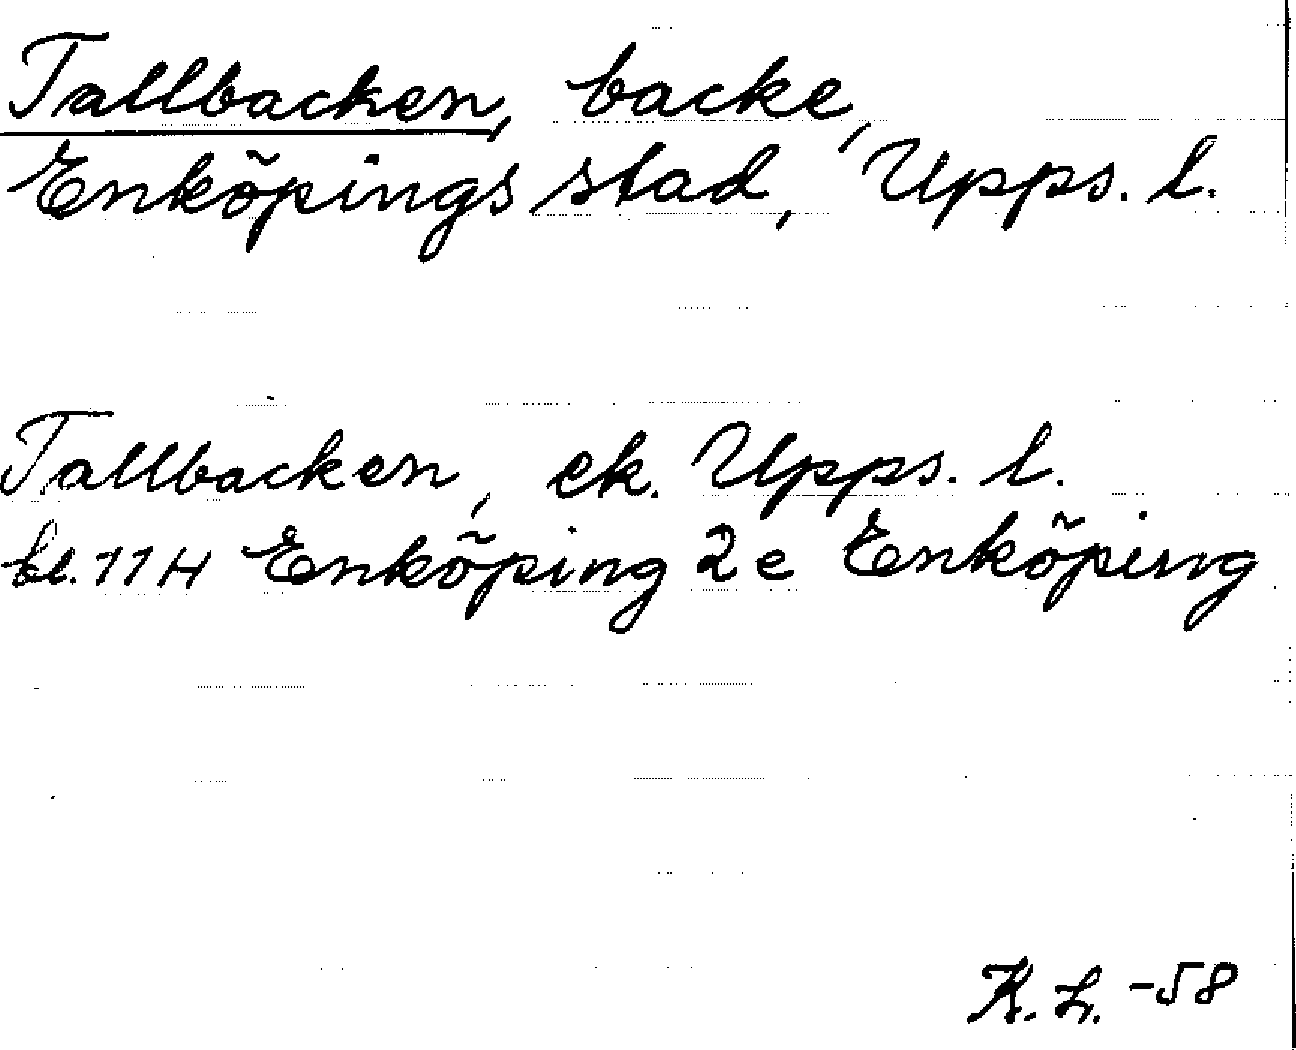 Tallbacken, backe,
Enköpings stad, Upps. l.
Tallbacken, ek. Upps. l.
bl. 11H Enköping 2e Enköping
K. L. -58